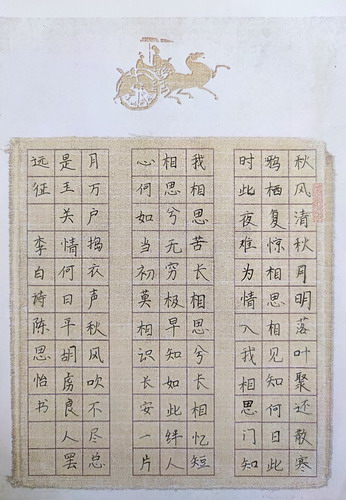 秋风清秋月明落叶聚还散寒
鸦栖复惊相思相见知何日此
时此夜难为情入我相思门知
我相思苦长相思兮长相忆短
相思兮无穷极早知如此绊人
心何如当初莫相识长安一片
月万户捣衣声秋风吹不尽总
是王关情何日平胡虏良人罢
远征 李白诗陈思怡书